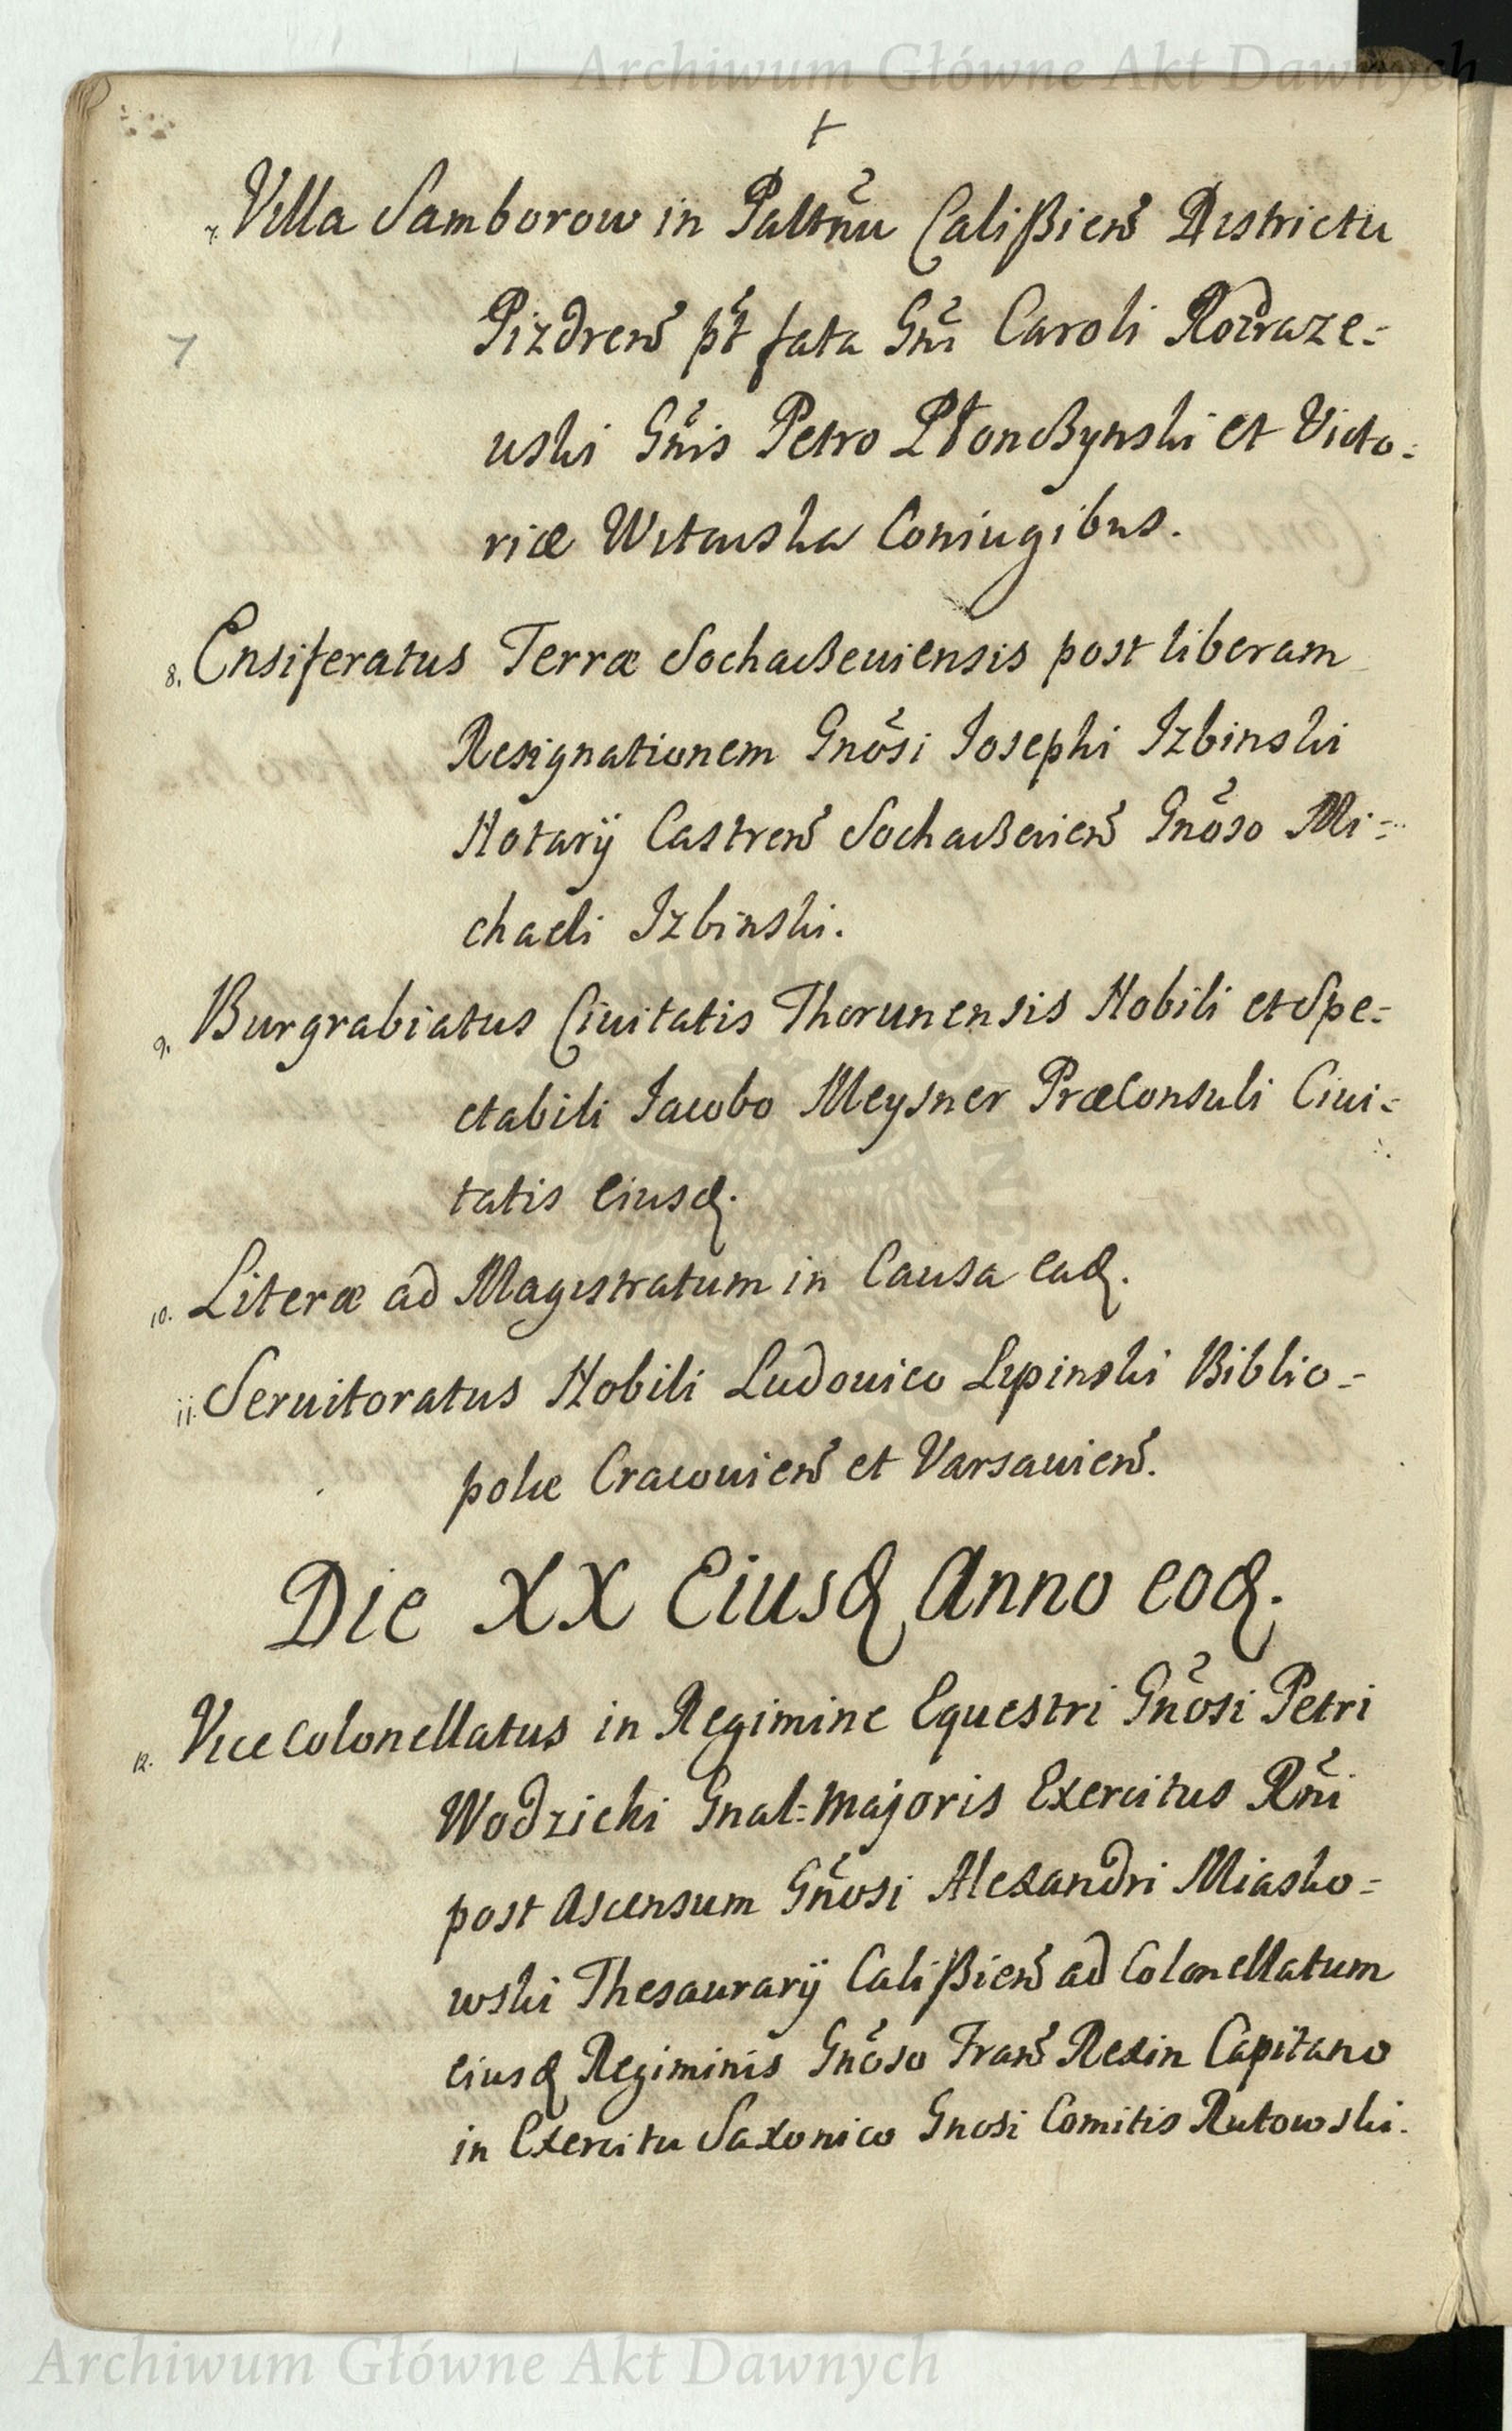 Archiwum Główne Akt Dawnych
7. Villa Samborow in Paltnũ Calißien̄ Districtu
Pizdren̄ pt̃ fata Gñi Caroli Rozraze=
7
uski Gñis Petro Płonczynski et Victo=
riæ Witauska Coniugibus.
8. Ensiferatus Terræ Sochaczeuiensis post liberam
Resignationem Gnõsi Iosephi Izbinski
Notarÿ Castren̄ Sochaczeuien̄ Gnõso Mi=
chaeli Izbinski.
9. Burgrabiatus Ciuitatis Thorunensis Nobili et Spe=
ctabili Iacobo Meysner PræConsuli Ciui=
tatis eiusd.
10. Literæ ad Magistratum in Causa ead.
11. Seruitoratus Nobili Ludouico Lipinski Biblio=
polæ Cracouien̄ et Varsauien̄.
Die XX Eiusd Anno eod.
12. Vice Colonellatus in Regimine Equestri Gnõsi Petri
Wodzicki Gnal=Majoris Exercitus Rñi
post Ascensum Gnõsi Alexandri Miasko=
wski Thesaurarÿ Calißien̄ ad Colonellatum
eiusd Regiminis Gnõso Fran̄ Rexin Capitano
in Exercitu Saxonico Gnosi Comitis Rutowski.
Archiwum Główne Akt Dawnych